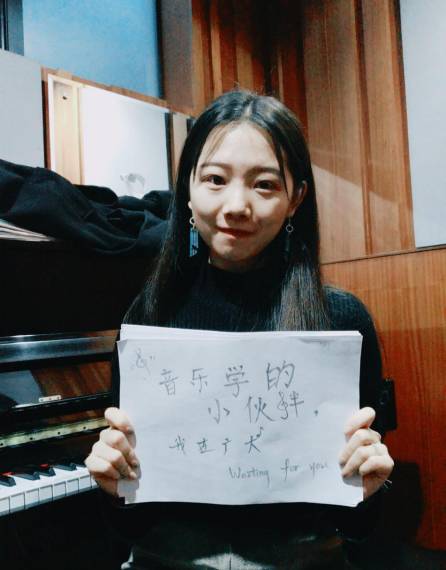 音乐学的
小伙拌，
我在广大
Waiting for you